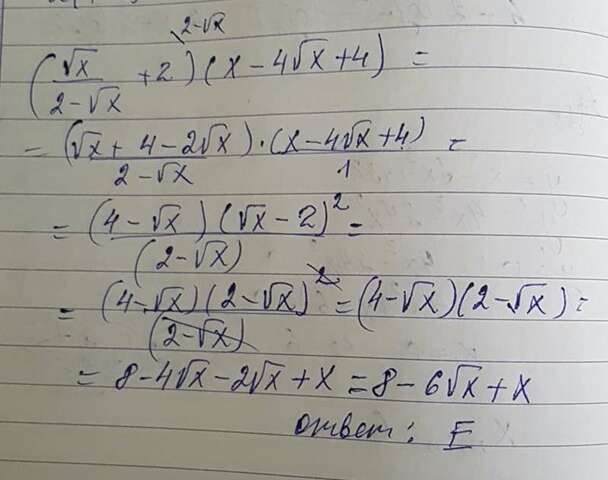 2-√x
(√x/(2-√x) + 2)(x - 4√x + 4) =
= (√x + 4 - 2√x)/(2-√x) · (x - 4√x + 4)/1 =
= (4-√x)(√x-2)²/(2-√x) =
= (4-√x)(2-√x)²/(2-√x) = (4-√x)(2-√x) =
= 8-4√x-2√x+x = 8-6√x+x
ответ: E